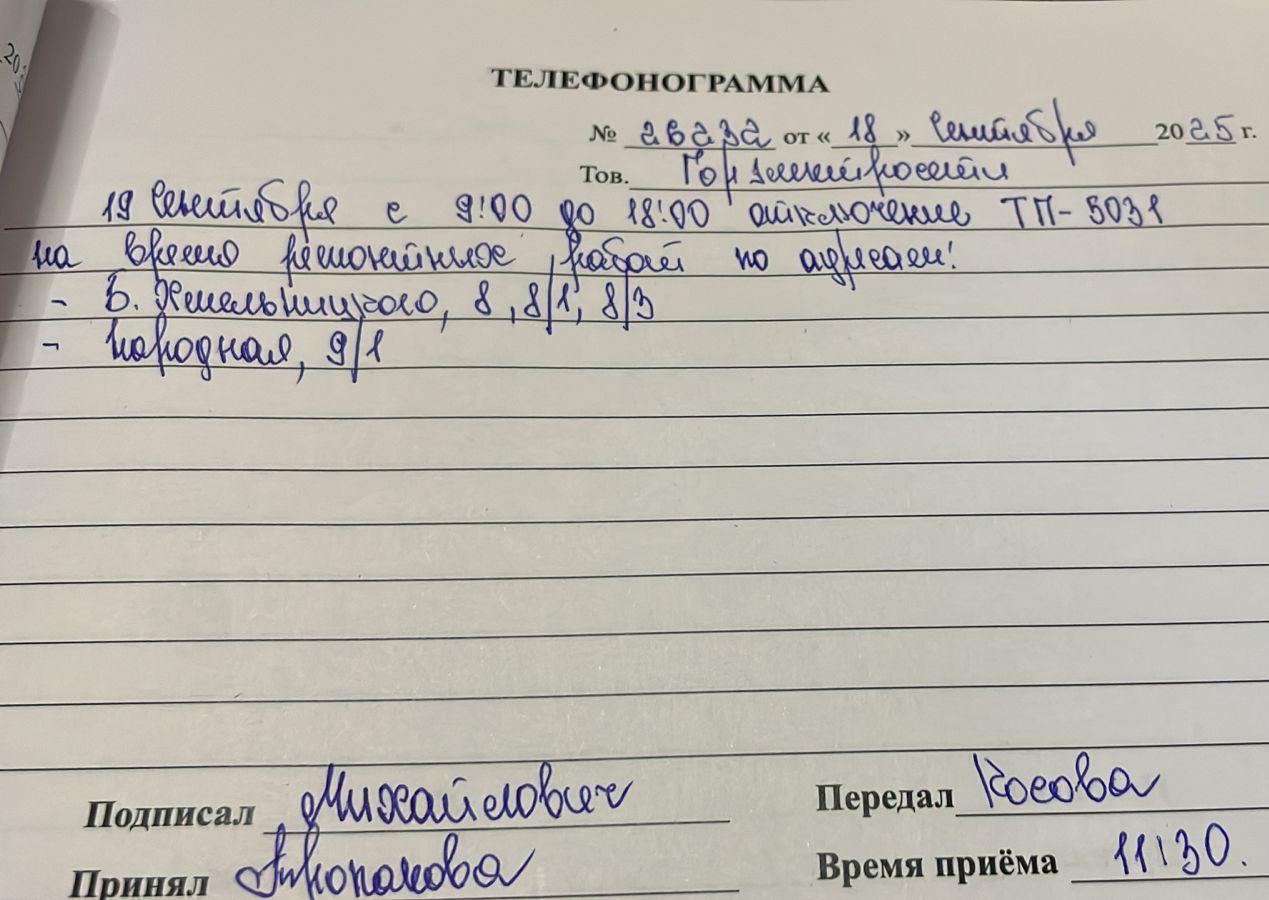 ТЕЛЕФОНОГРАММА
№ 26232 от «18» Сентября 2025 г.
Тов. Горэлектросети
19 Сентября с 9:00 до 18:00 отключение ТП-5031
на время ремонтных работ по адресам:
- Б. Хмельницкого, 8, 8/1, 8/3
- Народная, 9/1
Подписал Михайлович Передал Косова
Принял Время приёма 11:30.